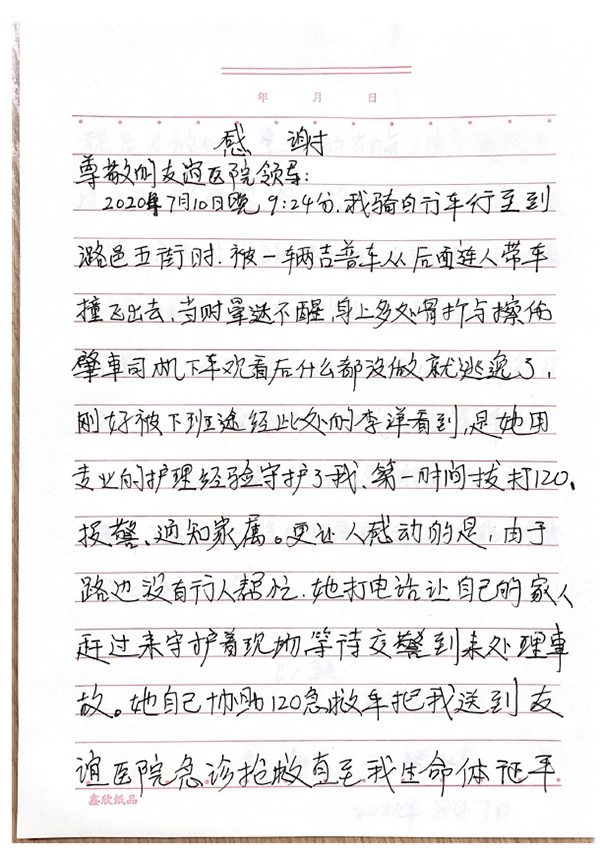 年 月 日
感 谢
尊敬的友谊医院领导:
2020年7月10日晚9:24分.我骑自行车行至到
潞邑五街时.被一辆吉普车从后面连人带车
撞飞出去,当时晕迷不醒,身上多处骨折与擦伤
肇车司机下车观看后什么都没做就逃逸了,
刚好被下班途经此处的李洋看到,是她用
专业的护理经验守护了我、第一时间拔打120、
报警、通知家属。更让人感动的是,由于
路边没有行人帮忙.她打电话让自己的家人
赶过来守护着现场等待交警到来处理事
故。她自己协助120急救车把我送到友
谊医院急诊抢救直至我生命体征平
鑫欣纸品